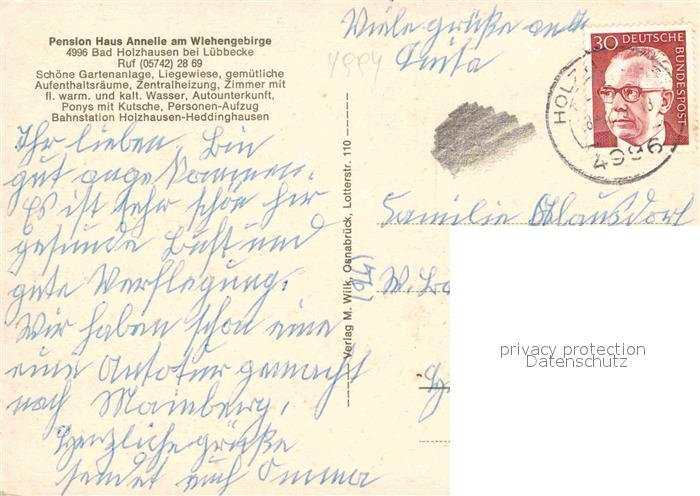 Pension Haus Annelie am Wiehengebirge
4996 Bad Holzhausen bei Lübbecke
Ruf (05742) 28 69
Schöne Gartenanlage, Liegewiese, gemütliche
Aufenthaltsräume, Zentralheizung, Zimmer mit
fl. warm. und kalt. Wasser, Autounterkunft,
Ponys mit Kutsche, Personen-Aufzug
Bahnstation Holzhausen-Heddinghausen
Ihr lieben, Bin
gut angekommen.
Es ist sehr schön hir
gesunde Luft und
gute Verflegung.
Wir haben schon eine
eine Autotur gemacht
nach
Herzliche grüße
sendet euch Omma
Verlag M. Wilk, Osnabrück, Lotterstr. 110
Viele grüße an
Anita
30 DEUTSCHE BUNDESPOST
HOLZ
4996
Familie
W.
privacy protection
Datenschutz